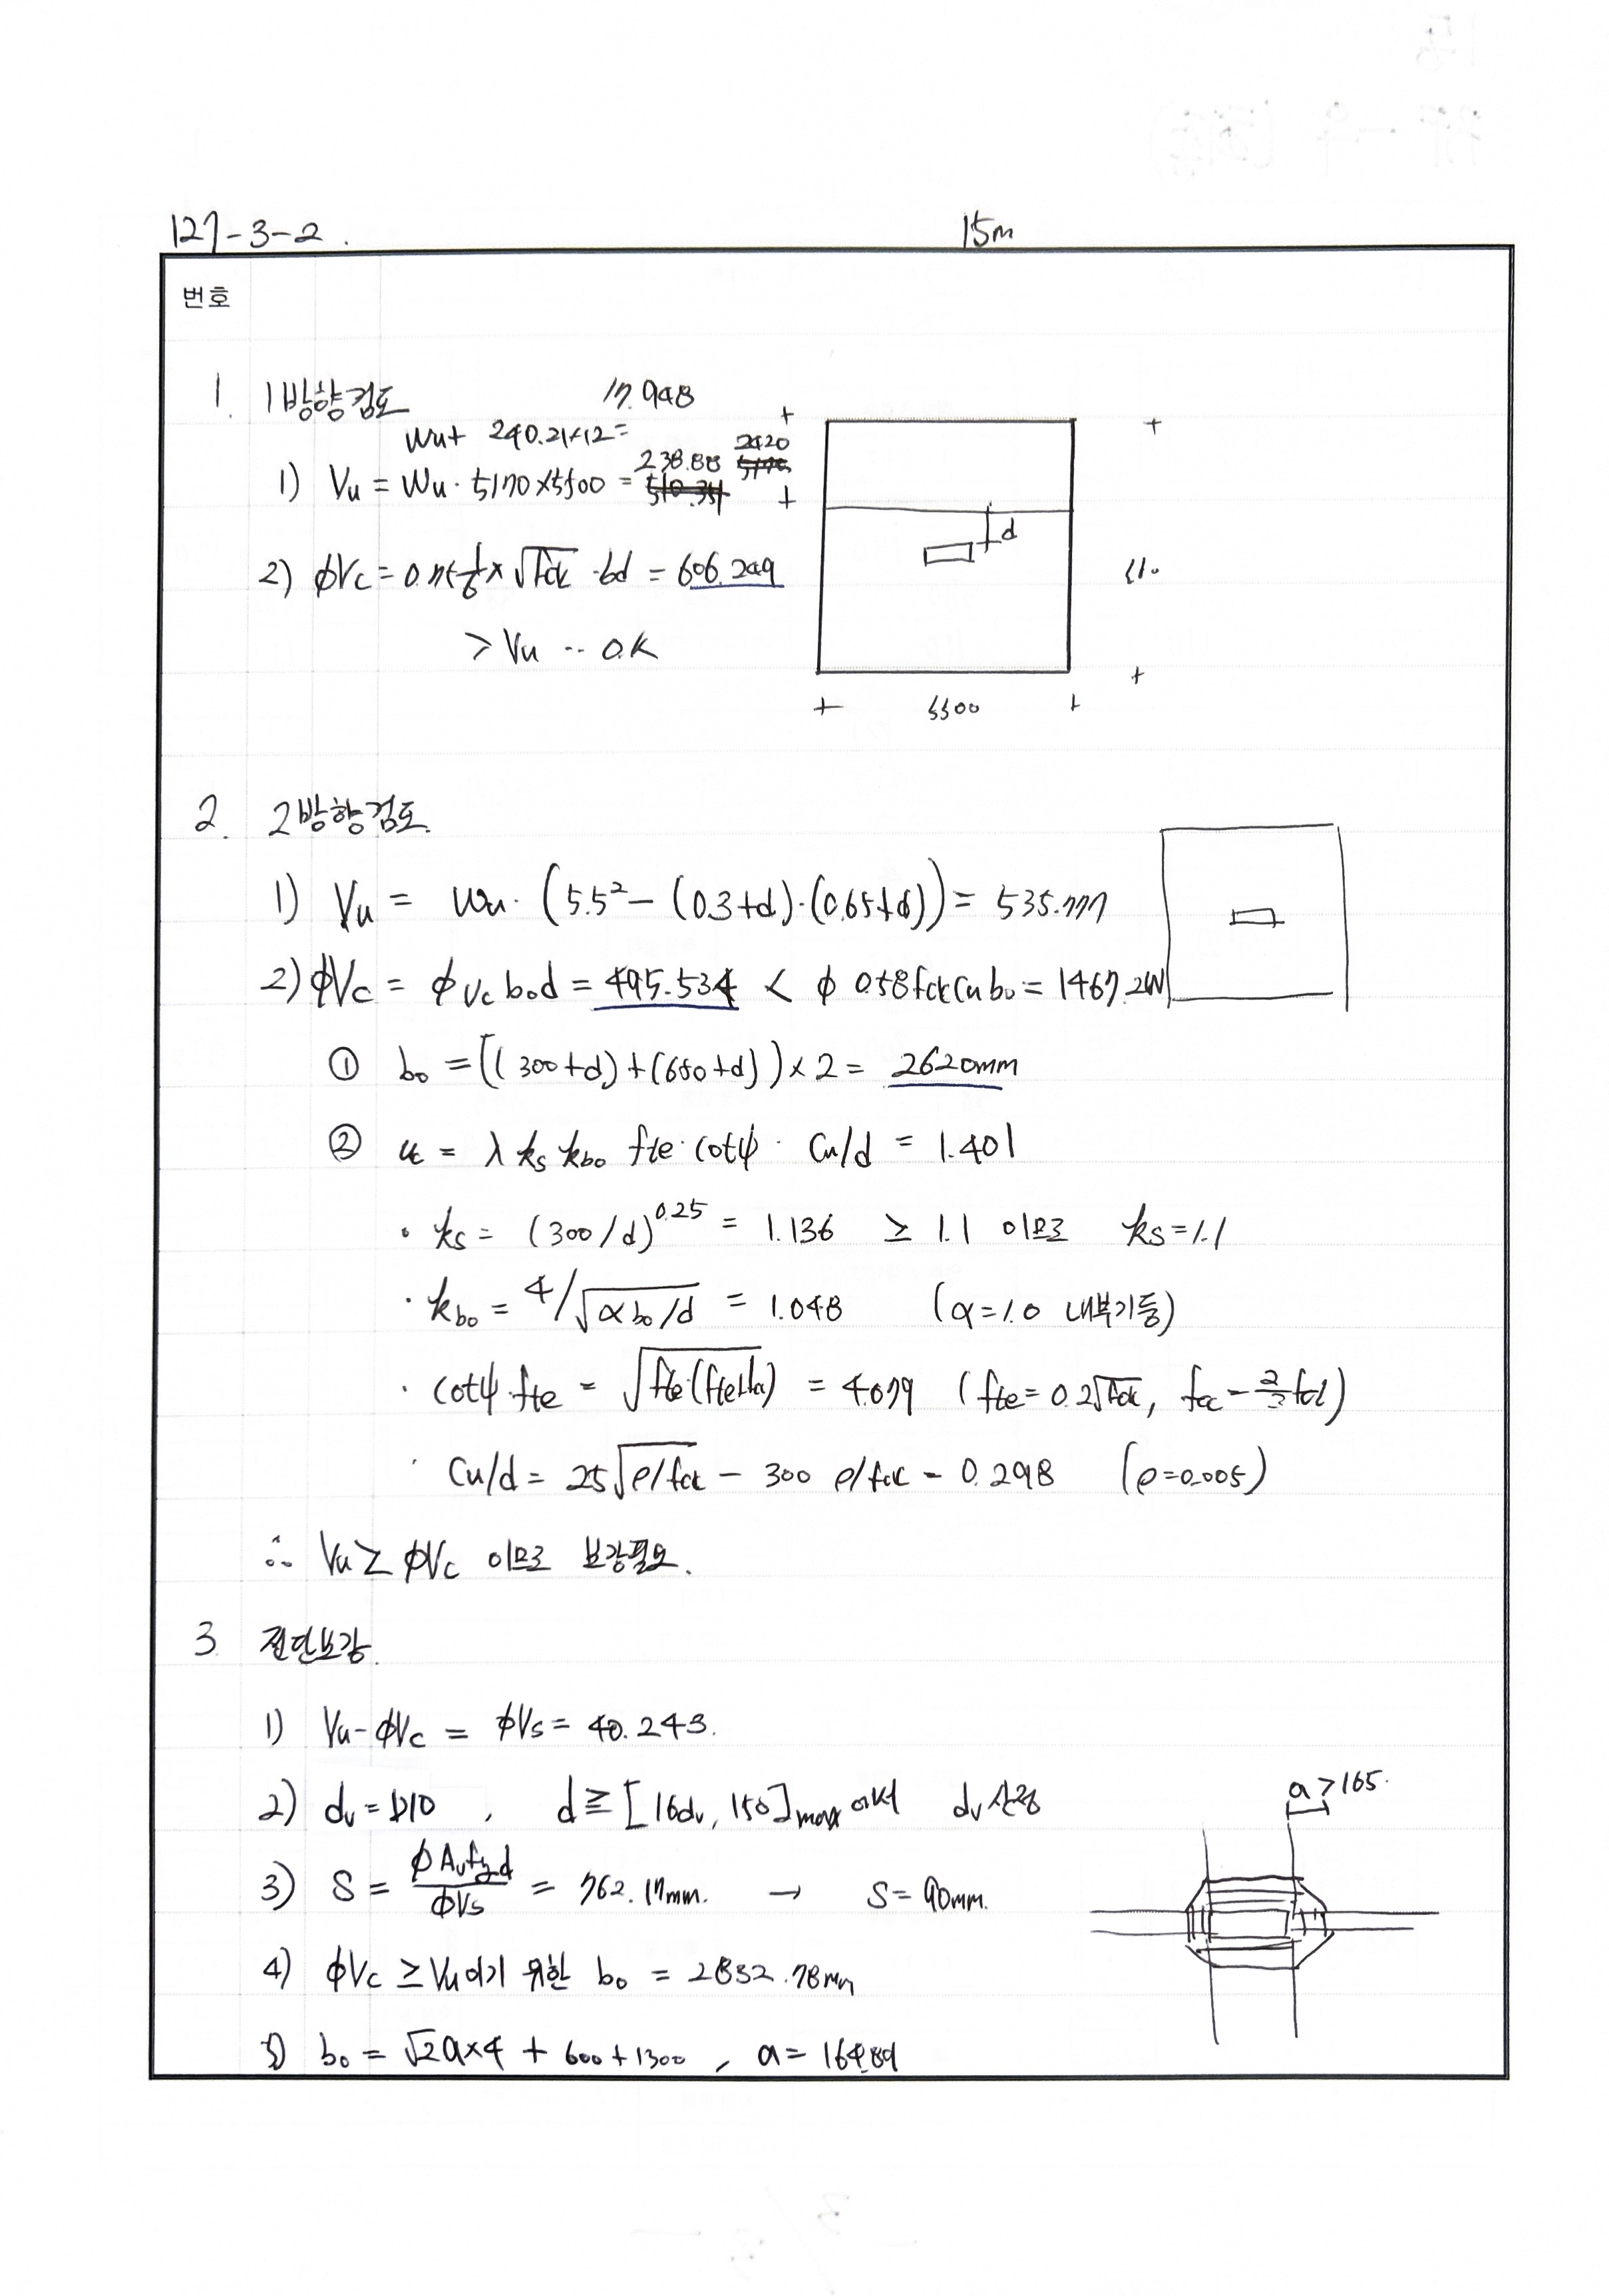 127-3-2.
15m
번호
1. 1방향검토
17.948
Wu+ 240.21×12=
1) Vu = Wu · 5170×5500 = 238.88
2420
d
2) φVc = 0.75×1/6×√fck · bd = 606.249
> Vu ‥ O.K
5500
2. 2방향검토.
1) Vu = Wu · (5.5² − (0.3+d)·(0.65+d)) = 535.777
2) φVc = φ vc bod = 495.534 < φ 0.58 fck Cu bo = 1467.2kN
① bo = ((300+d)+(650+d))×2 = 2620mm
② vc = λ ks kbo fte · cotψ · Cu/d = 1.401
· ks = (300/d)^0.25 = 1.136 ≥ 1.1 이므로 ks=1.1
· kbo = 4/√αbo/d = 1.048 (α=1.0 내부기둥)
· cotψ·fte = √fte(fte+fcc) = 4.079 (fte = 0.2√fck, fcc = 2/3 fck)
· Cu/d = 25√ρ/fck − 300 ρ/fck = 0.298 (ρ=0.005)
∴ Vu ≥ φVc 이므로 보강필요.
3 전단보강.
1) Vu-φVc = φVs = 40.243.
2) dv = D10 , d ≧ [16dv, 150]max 에서 dv 산정
a>165.
3) S = φAvfyd/φVs = 762.17mm. → S = 90mm.
4) φVc ≥ Vu이기 위한 bo = 2832.78mm
5) bo = √2a×4 + 600+1300 , a = 164.89